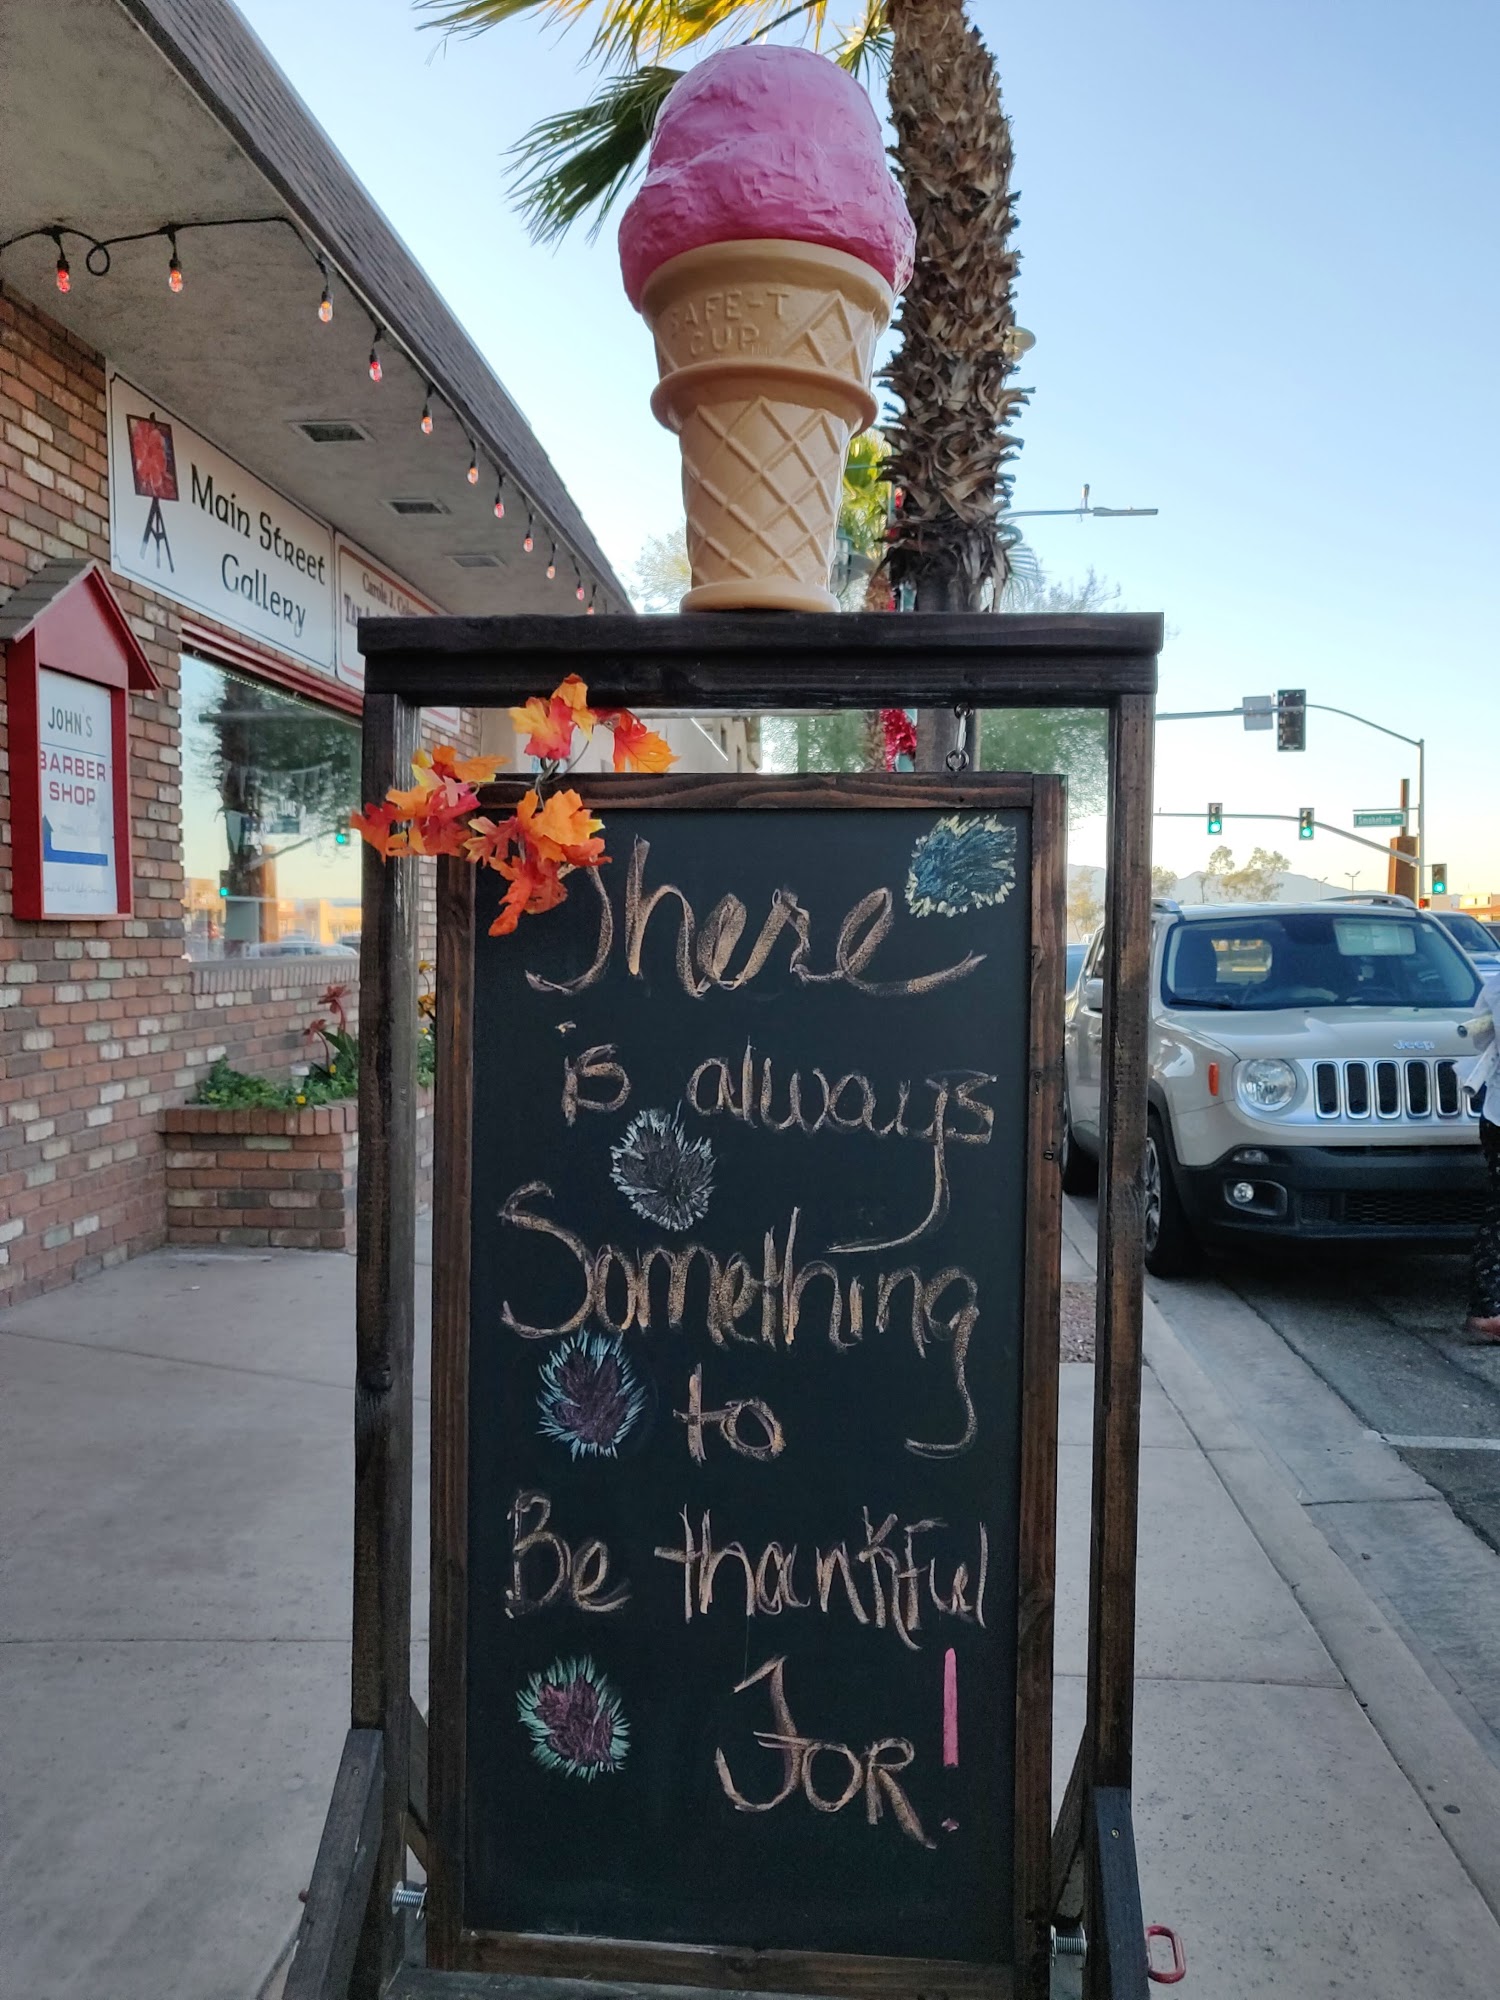 AFE-T
CUP
Main Street
Gallery
JOHN'S
BARBER
SHOP
There
is always
Something
to
Be thankful
For!
Jeep
Smoketree